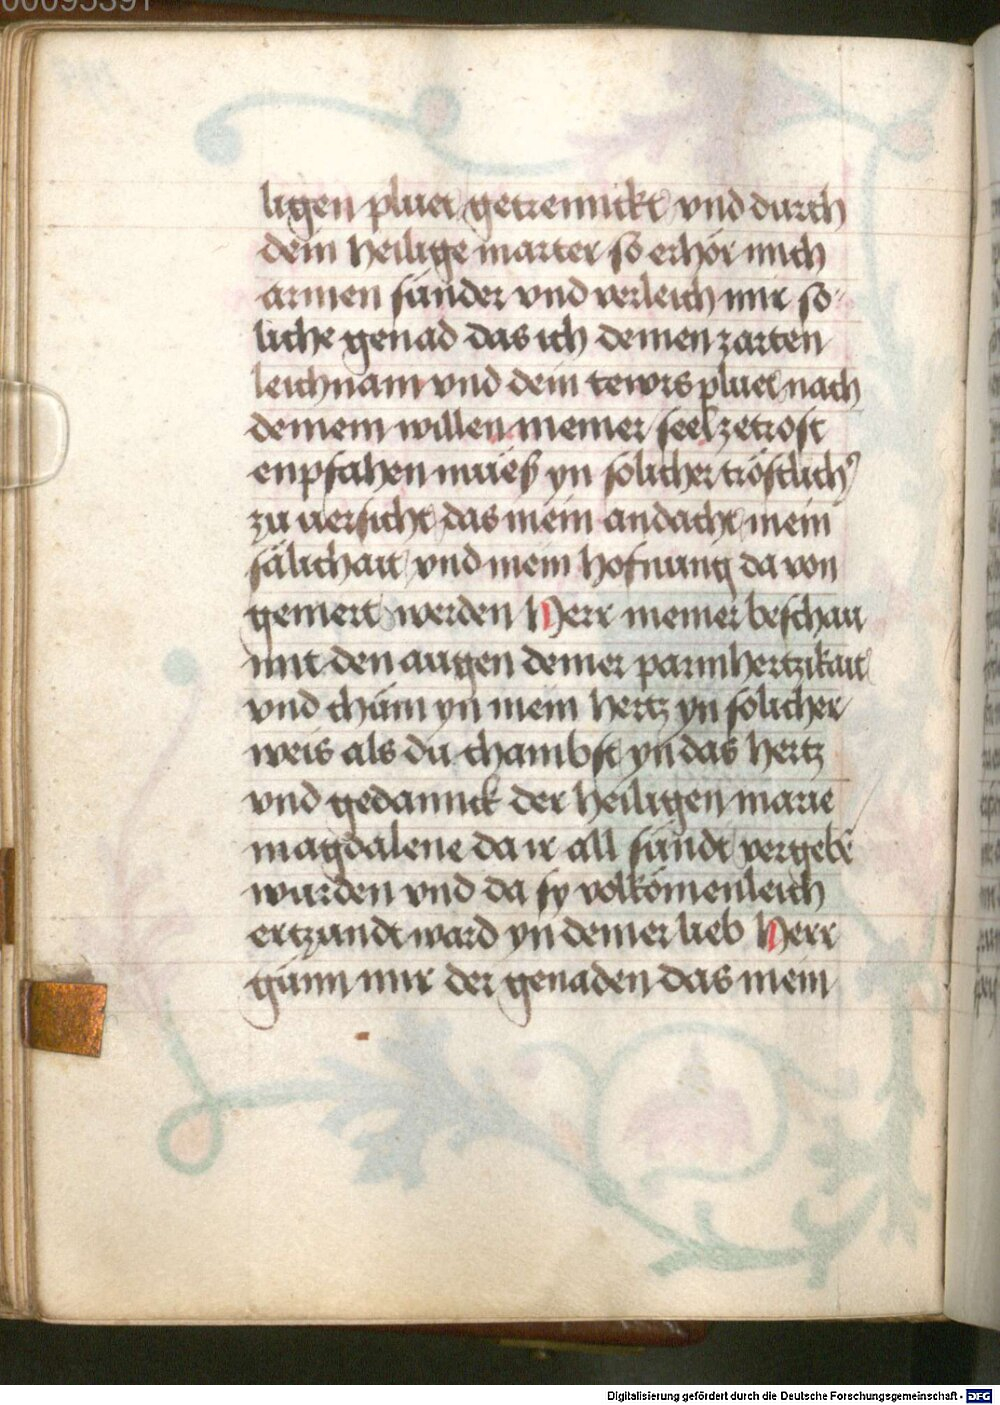 00095391
ligen pluet getrennckt vnd durch
dein heilige marter so erhör mich
armen sünder vnd verleich mir so-
liche genad das ich deinen zarten
leichnam vnd dein tewrs pluet nach
deinem willen meiner seel ze trost
enpfahen mueß yn solicher tröstlicher
zu versicht das mein andacht mein
sälichait vnd mein hofnung da von
gemert werden Herr meiner beschau
mit den augen deiner parmhertzikait
vnd chüm yn mein hertz yn solicher
weis als du chambst yn das hertz
vnd gedannck der heiligen marie
magdalene da ir all sündt vergebē
wurden vnd da sy volkömenleich
ertzundt ward yn deiner lieb Herr
günn mir der genaden das mein
Digitalisierung gefördert durch die Deutsche Forschungsgemeinschaft - DFG